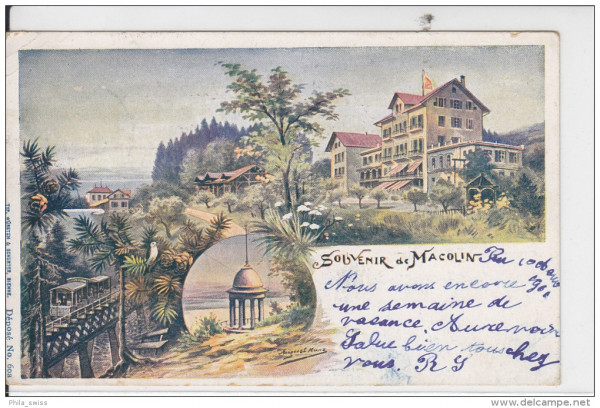 SOUVENIR de MACOLIN
Nous avons encore
une semaine de
vacance. Au revoir
Salue bien tous chez
vous. R S
Déposé No. 609
Phila_swiss
delcampe.net